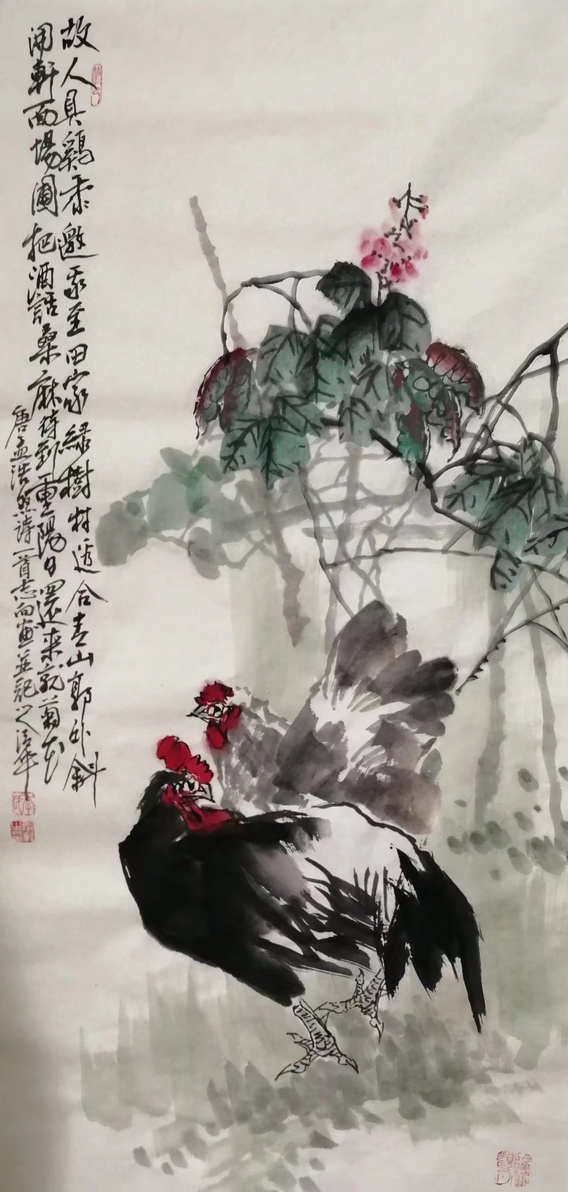 故人具鷄黍邀我至田家綠樹村邊合青山郭外斜
開軒面場圃把酒話桑麻待到重陽日還來就菊花
唐孟浩然詩一首志向畫並記之